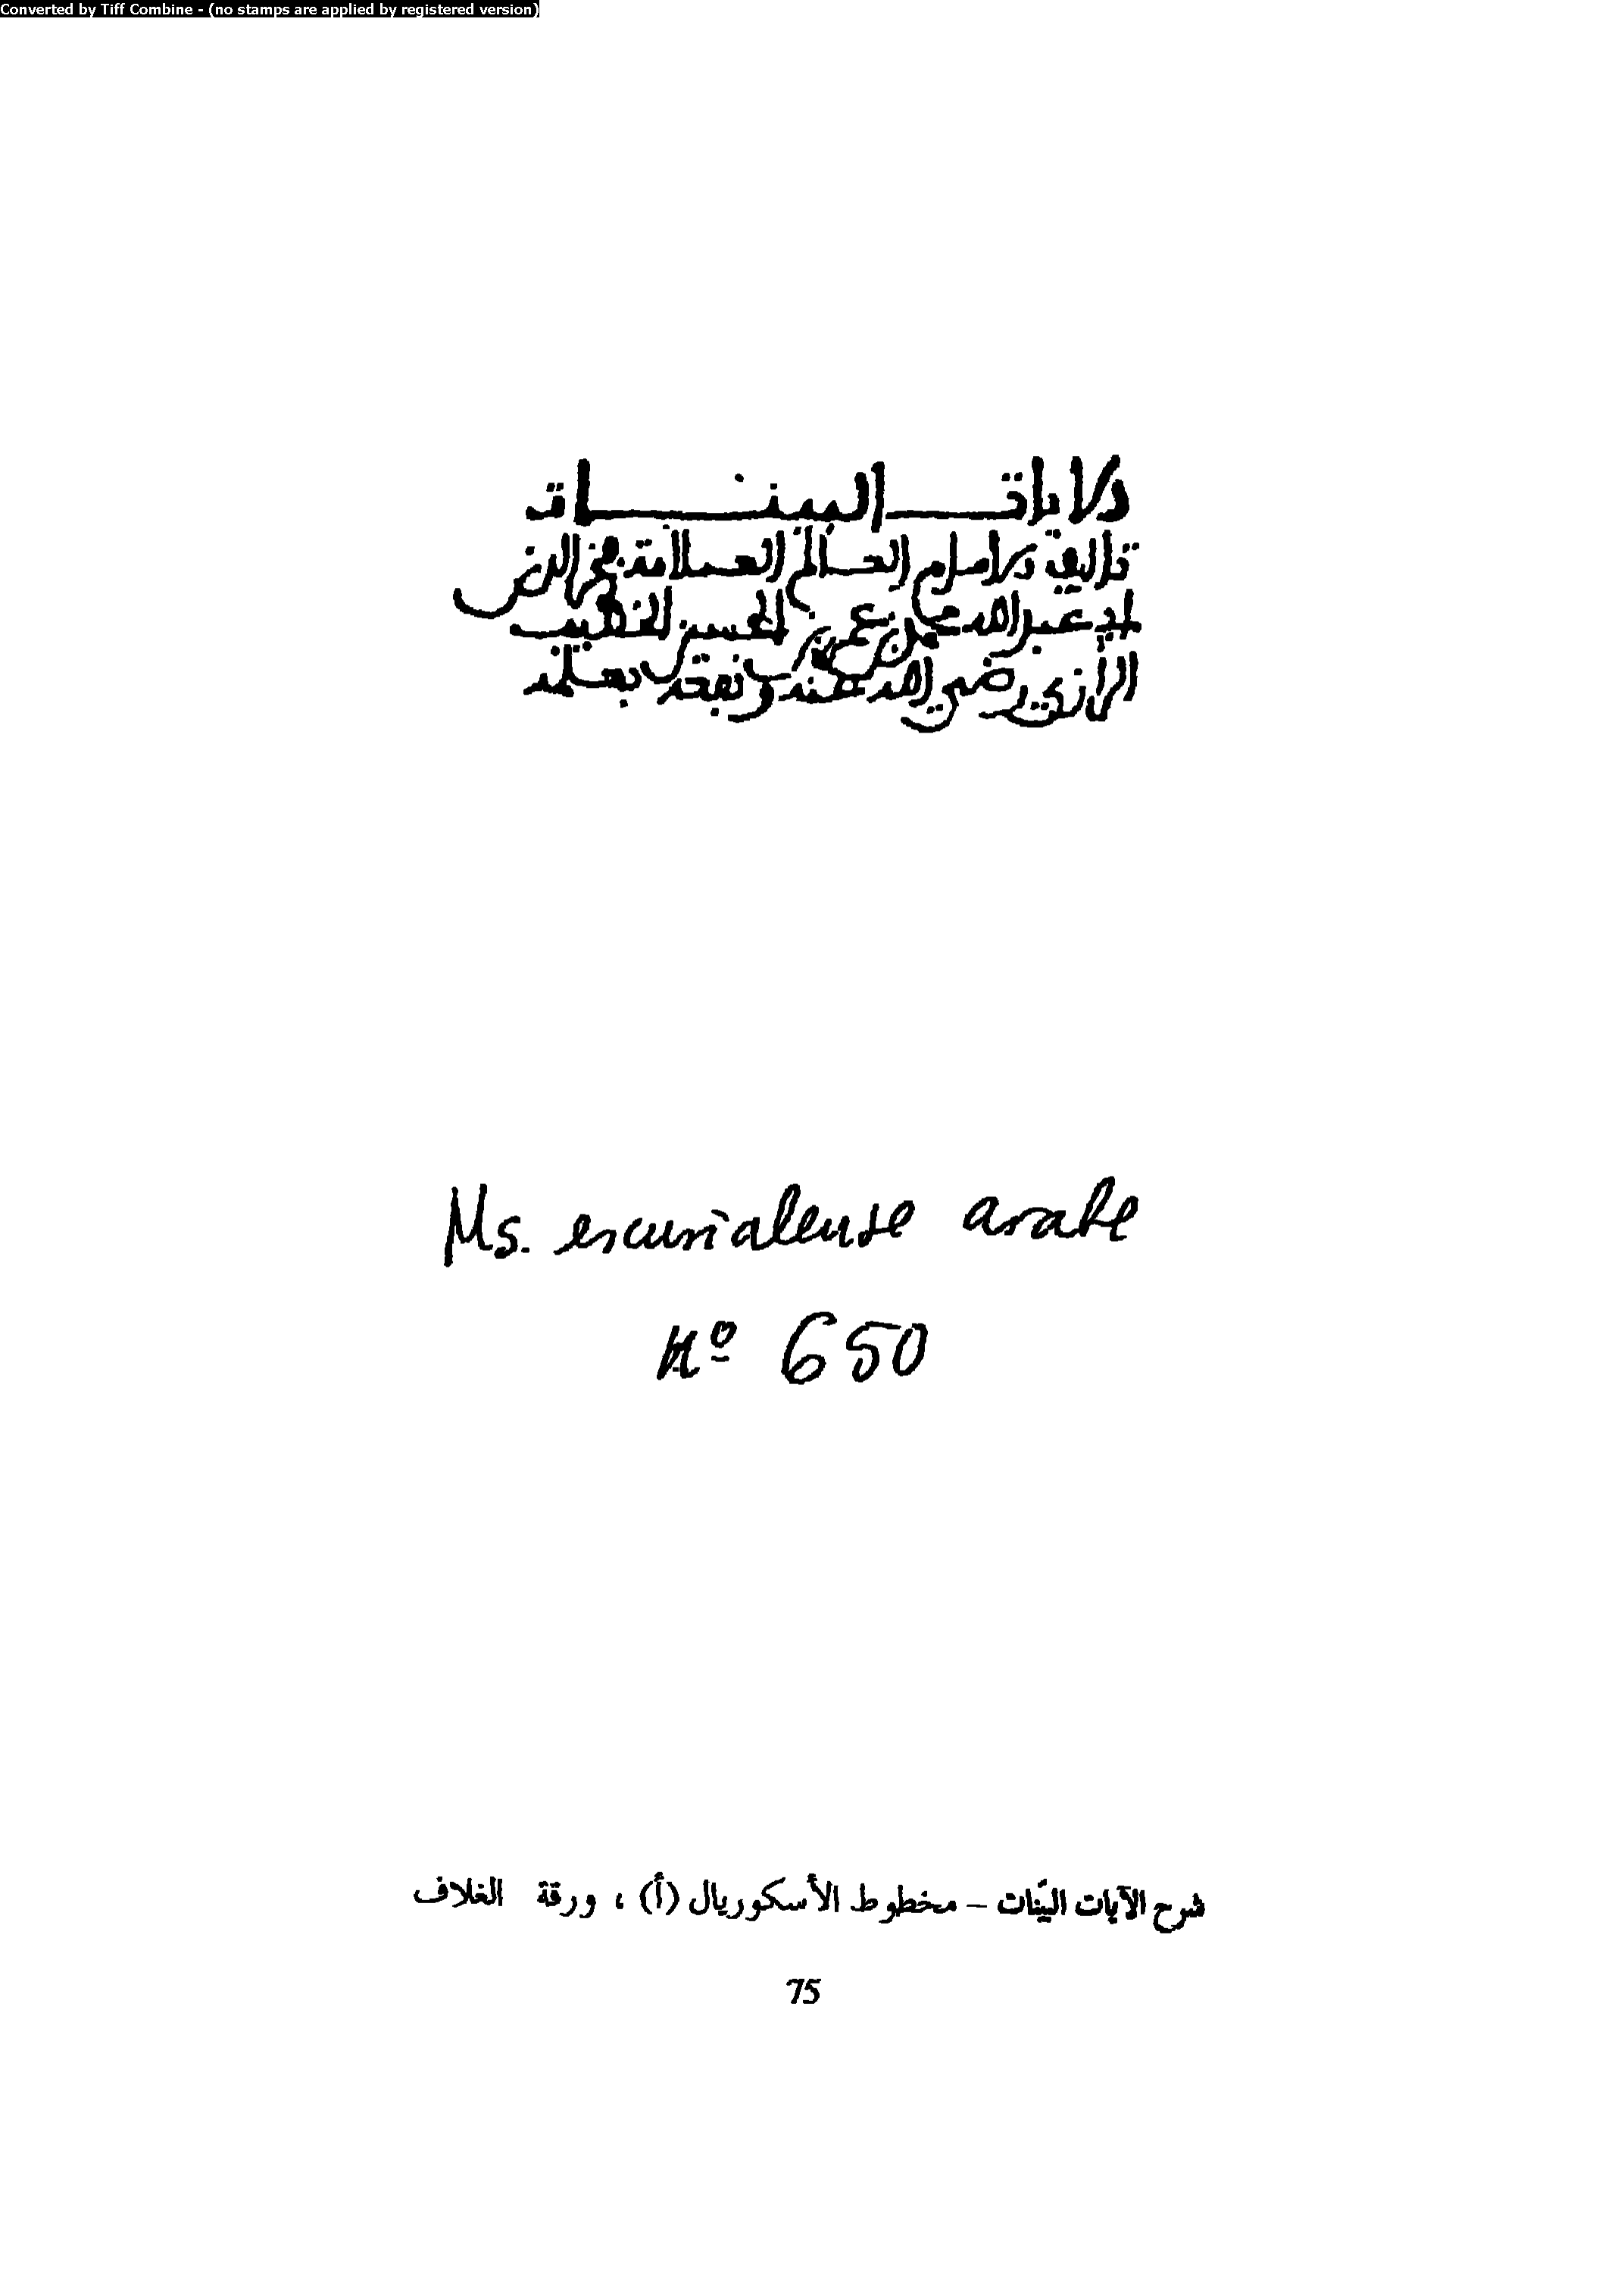 Converted by Tiff Combine - (no stamps are applied by registered version)
الايات البينات
تاليف الامام العالم العلامة فخر الدين
ابي عبد الله محمد بن عمر بن الحسين الخطيب
الرازي رضي الله عنه ونفعنا بعلمه
Ms. escurialense arabe
nº 650
شرح الآيات البيّنات – مخطوط الأسكوريال (أ) ، ورقة الغلاف
75